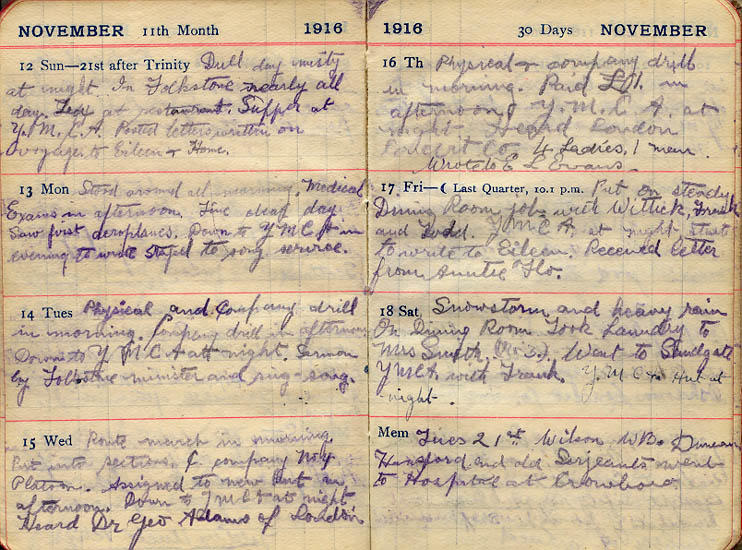 NOVEMBER 11th Month 1916
12 Sun—21st after Trinity Dull day misty
at night. In Folkstone nearly all
day. Tea at restaurant. Supper at
Y.M.C.A. Posted letters written on
voyage to Eileen + Home.
13 Mon Stood around all morning. Medical
Exams in afternoon. Fine clear day
Saw first aeroplanes. Down to Y M C A in
evening to write stayed to song service.
14 Tues Physical and Company drill
in morning. Company drill in afternoon
Down to Y M C A at night. Sermon
by Folkstone minister and sing-song.
15 Wed Route march in morning.
Put into sections. C company No 4
Platoon. Assigned to new hut in
afternoon. Down to Y M C A at night
Heard Dr Geo Adams of London
1916 30 Days NOVEMBER
16 Th Physical + company drill
in morning. Paid in
afternoon Y.M.C.A. at
night. Heard London
Concert Co. 4 Ladies, 1 man.
Wrote to E L Evans.
17 Fri—( Last Quarter, 10.1 p.m. Put on steady
Dining Room job with Wittick, Frank
and Todd. Y M C A at night start
to write to Eileen. Received letter
from Auntie Flo.
18 Sat Snowstorm and heavy rain
On Dining Room Took Laundry to
Mrs Smith, (No 3). Went to Sandgate
YMCA with Frank. Y.M.C.A. Hut at
night.
Mem Tues 21st Wilson WB. Duncan
Hansford and old Serjeants went
to Hospital at Crowboro